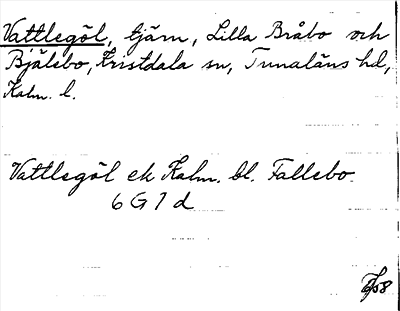 Vattlegöl, tjärn, Lilla Bråbo och
Bjälebo, Kristdala sn, Tunaläns hd,
Kalm. l.
Vattlegöl ek Kalm. bl. Fallebo.
6 G 7 d